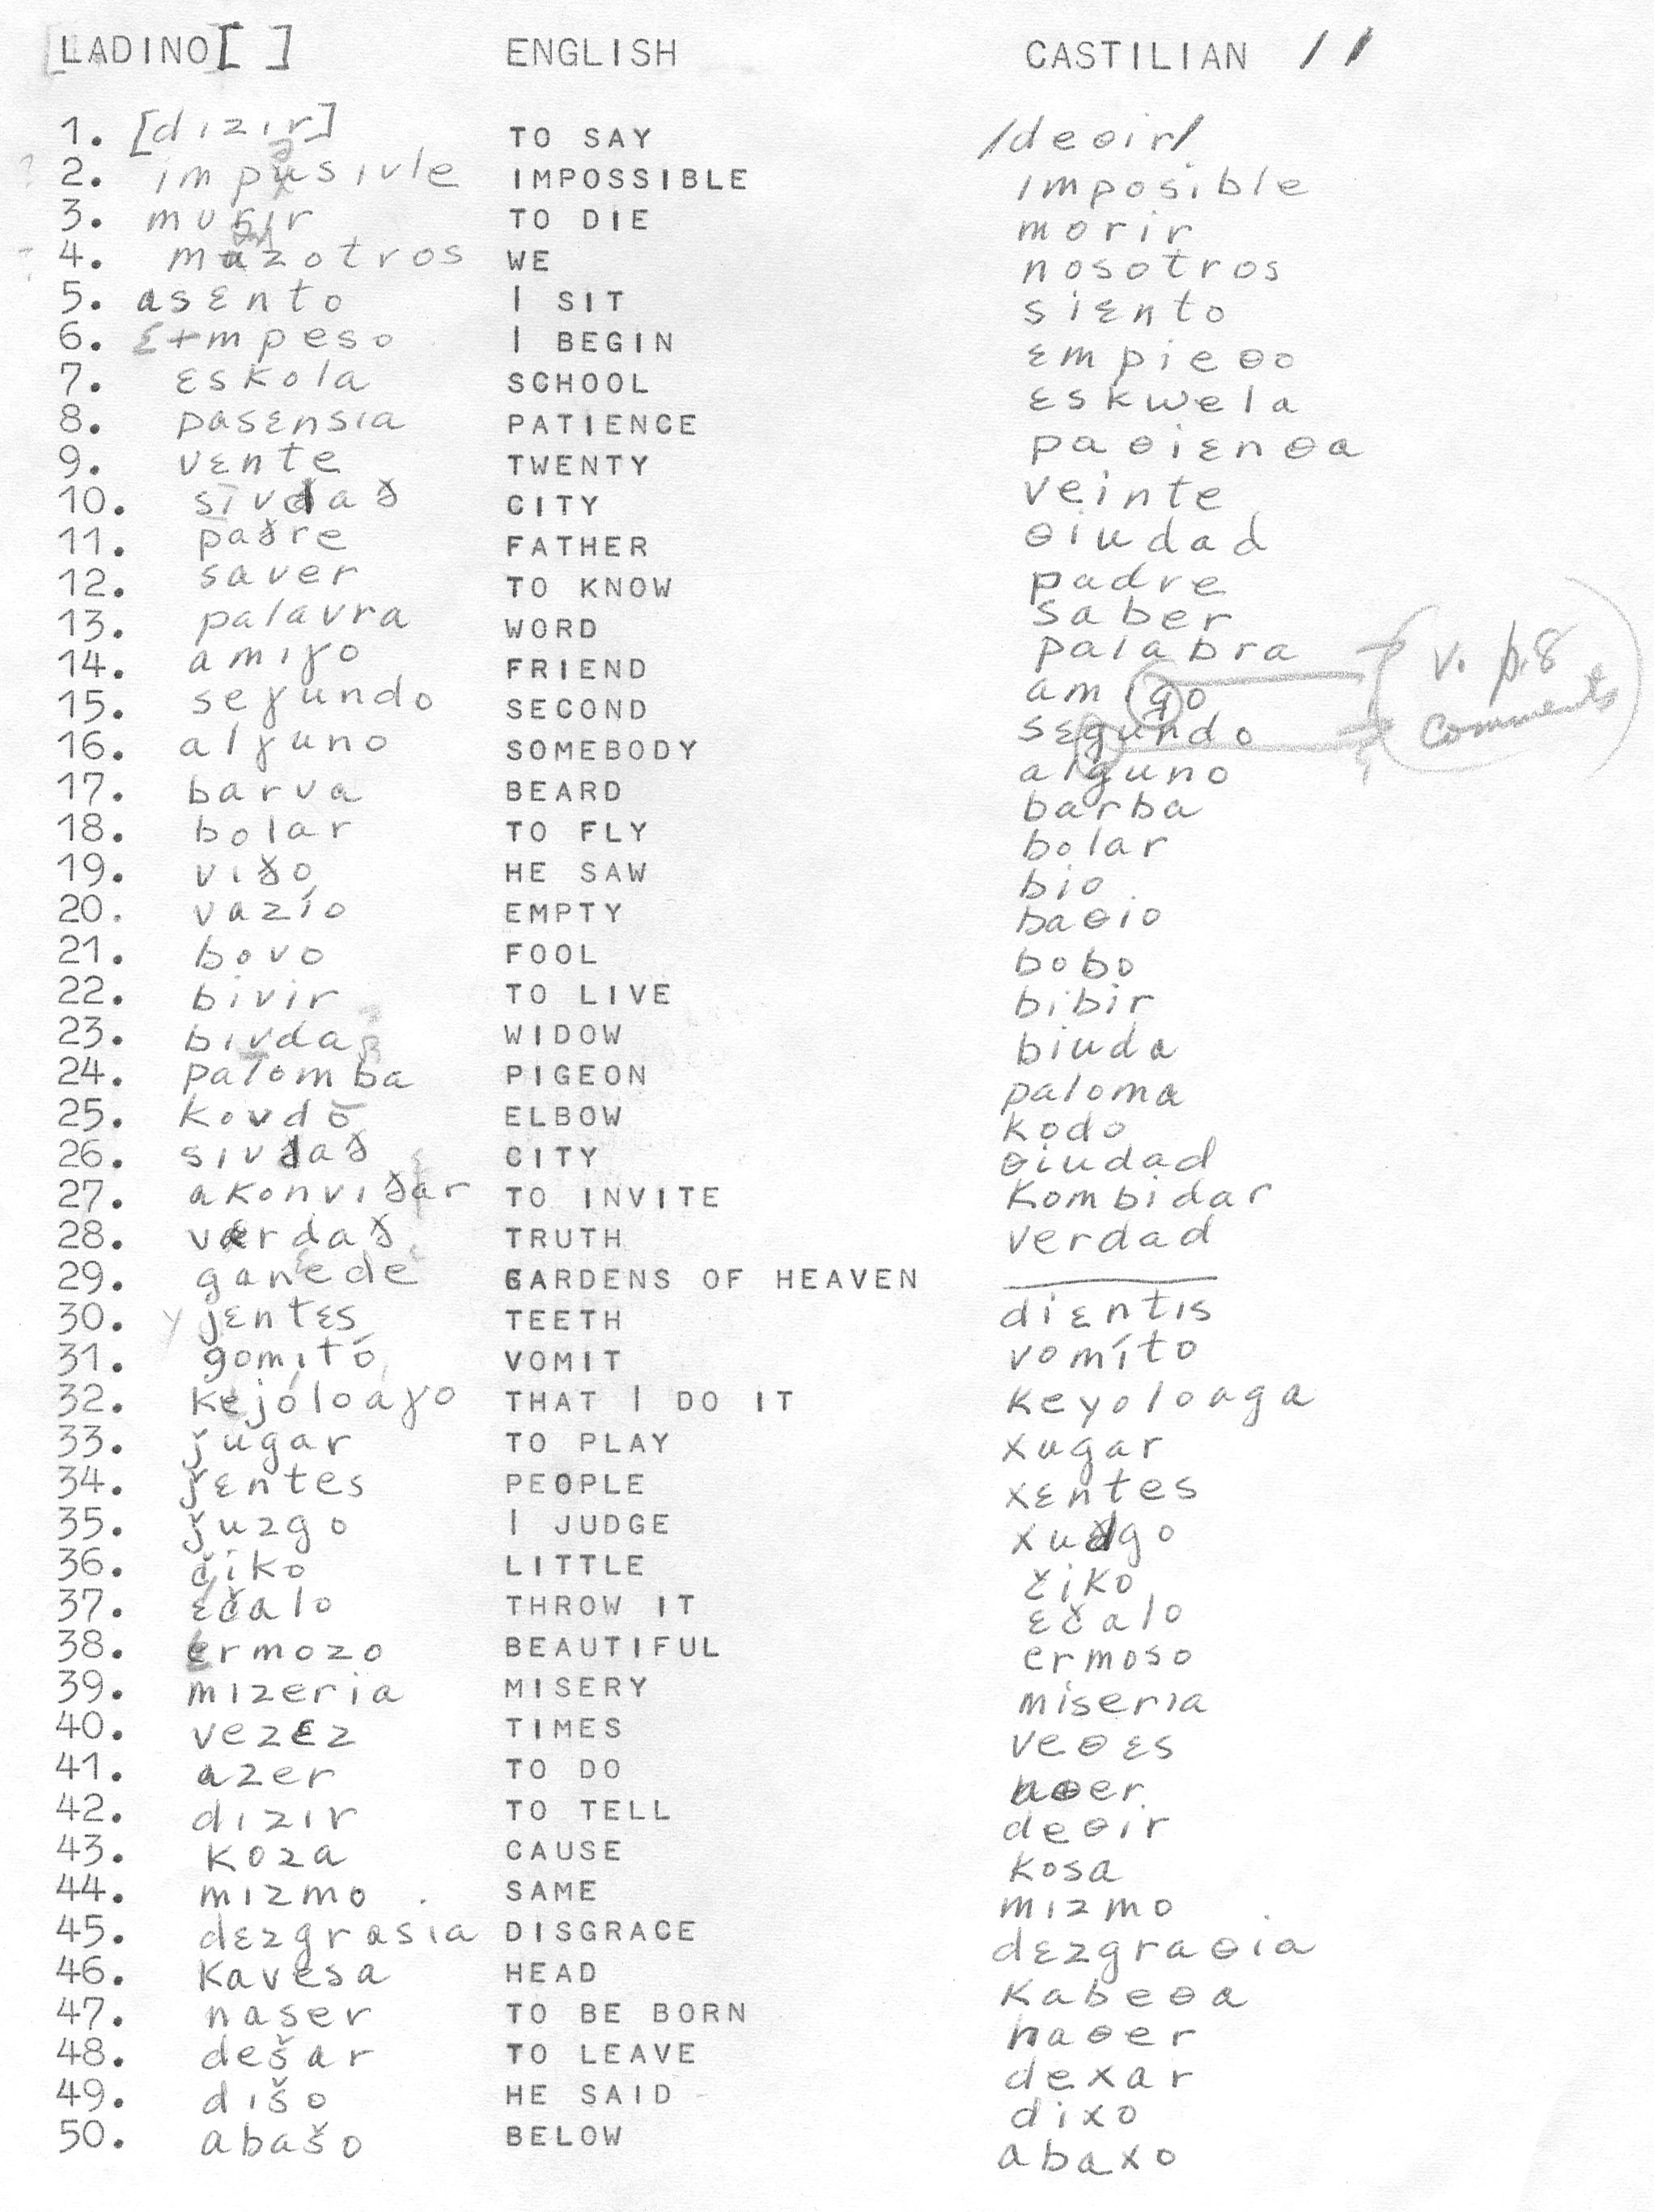 LADINO [ ] ENGLISH CASTILIAN / /
1. [dızır] TO SAY /deθir/
2. impusıvle IMPOSSIBLE imposible
3. murır TO DIE morir
4. muzotros WE nosotros
5. asɛnto I SIT siɛnto
6. ɛmpeso I BEGIN ɛmpieθo
7. ɛskola SCHOOL ɛskwela
8. pasɛnsıa PATIENCE paθiɛnθa
9. vɛnte TWENTY veinte
10. sivdað CITY θiudad
11. paðre FATHER padre
12. saver TO KNOW saber
13. palavra WORD palabra
14. amıɣo FRIEND amigo
15. seɣundo SECOND sɛgundo
16. alɣuno SOMEBODY alguno
v. p.8
comments
17. barva BEARD barba
18. bolar TO FLY bolar
19. vıðo HE SAW bio
20. vazío EMPTY baθio
21. bovo FOOL bobo
22. bivir TO LIVE bibir
23. bıvda WIDOW biuda
24. palomba PIGEON paloma
25. kovdo ELBOW kodo
26. sıvdað CITY θiudad
27. akonvıðar TO INVITE kombidar
28. vɛrdað TRUTH verdad
29. ganede GARDENS OF HEAVEN ———
30. jɛntɛs TEETH diɛntıs
31. gomıtó VOMIT vomíto
32. kejóloaɣo THAT I DO IT keyoloaga
33. ǰugar TO PLAY xugar
34. ǰɛntes PEOPLE xɛntes
35. ǰuzgo I JUDGE xudgo
36. čiko LITTLE čiko
37. ɛčalo THROW IT ɛčalo
38. ermozo BEAUTIFUL ermoso
39. mızeria MISERY miserıa
40. vezɛz TIMES veθɛs
41. azer TO DO aθer
42. dızır TO TELL deθir
43. koza CAUSE kosa
44. mızmo SAME mızmo
45. dɛzgrasıa DISGRACE dɛzgraθia
46. kavesa HEAD kabeθa
47. naser TO BE BORN naθer
48. dešar TO LEAVE dexar
49. dıšo HE SAID dixo
50. abašo BELOW abaxo